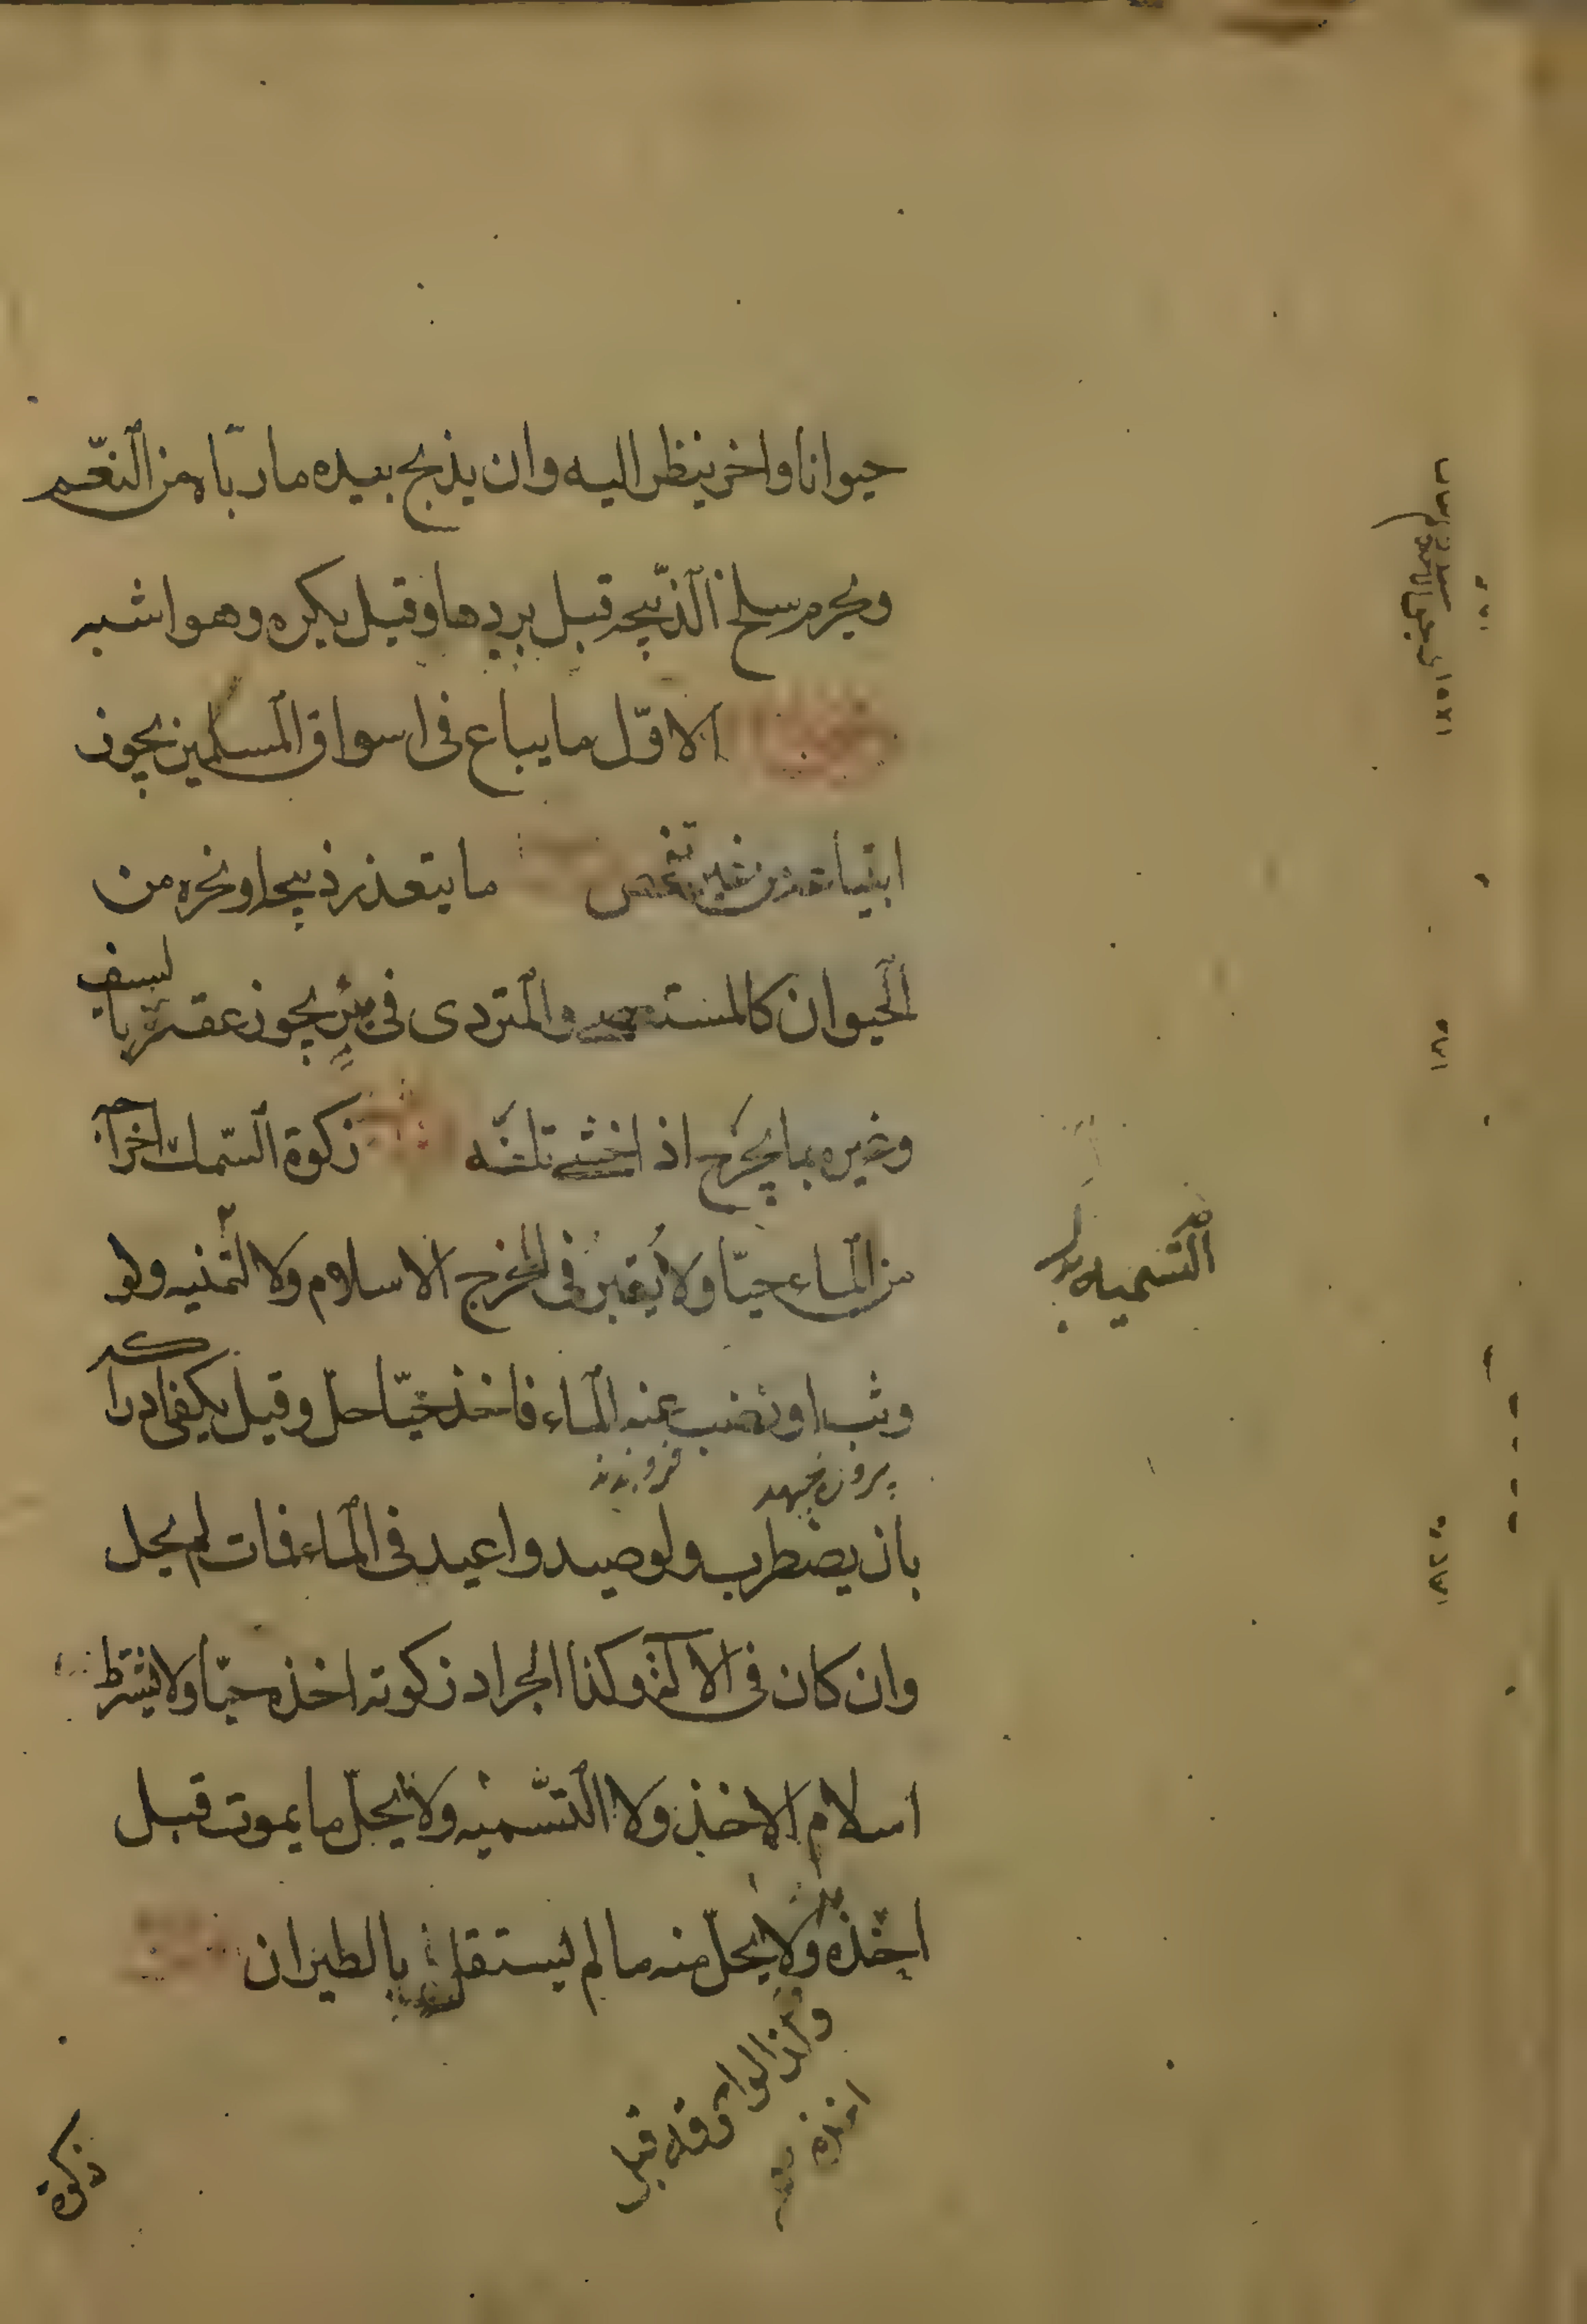 حيوانا واخر ينظر اليه وان يذبح بيده ما ربّاه من النّعم
ويحرم سلخ الذّبيحه قبل بردها وقيل يكره وهو اشبه
الاوّل ما يباع فى اسواق المسلمين يجوز
ابتياعه من غير تفحص ما يتعذر ذبحه او نحره من
الحيوان كالمستعصى والمتردى فى بئر يجوز عقره بالسيف
وغيره بما يجرح اذا خشى تلفه ذكوة السّمك اخراجه
من الماء حيّا ولا يعتبر فى المخرج الاسلام ولا التّسميه ولو
التسميه بدل
وثب او نضب عنه الماء فاخذ حيّا حلّ وقيل يكفى ادراكه
بان يضطرب ولو صيد واعيد فى الماء فمات لم يحل
وان كان فى الآلة وكذا الجراد ذكوته اخذه حيّا ولا يشترط
اسلام الاخذ ولا التّسميه ولا يحلّ ما يموت قبل
اخذه ولا يحلّ منه ما لم يستقل بالطيران
وكذا لو احرقه قبل
اخذه
ذكوة